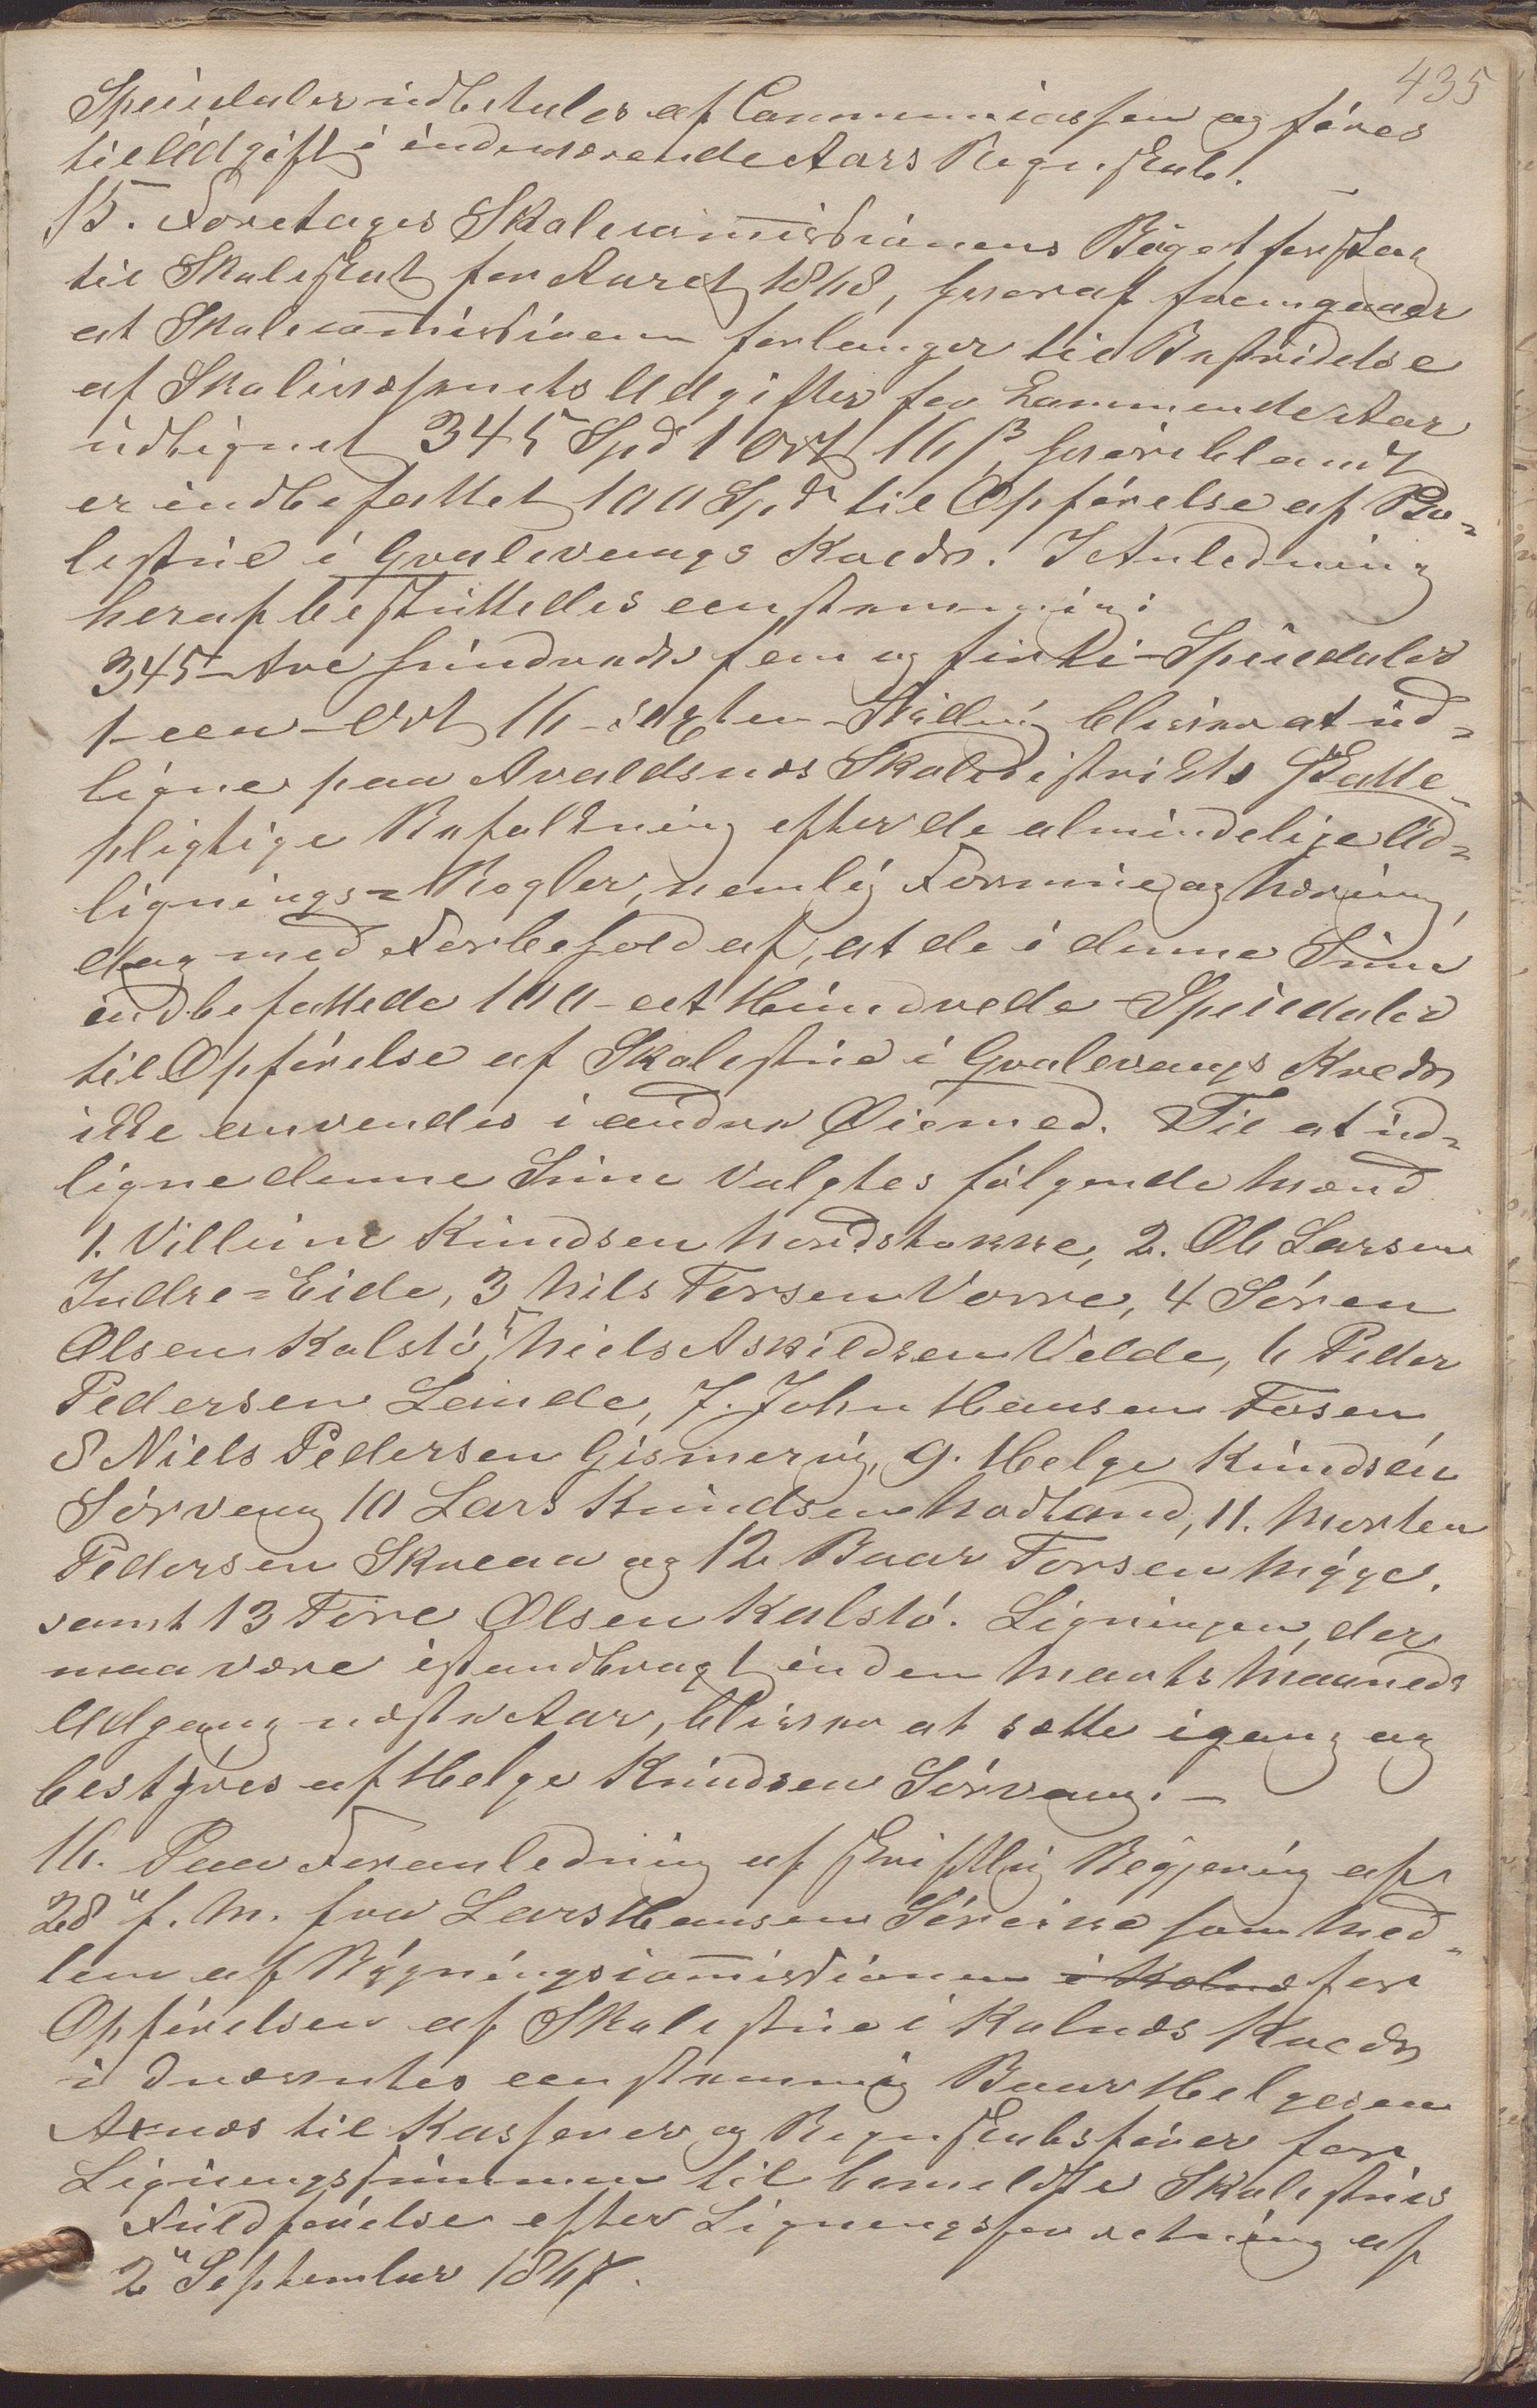 435
Speciedaler udbetales af Communecassen og føres
til Udgift i indeværende Aars Regnskab. –
15. Foretoges Skolecommissionens Budgetforslag
til Skoleskat for Aaret 1868, hvoraf fremgaaer
at Skolecommissionen forlanger til Bestridelse
af Skolevæsenets Udgifter for kommende Aar
udlignet 345 Spd 1 Ort 16 β, hvoriblandt
er indbefattet 100 Spd til Opførelse af Sko-
lestue i Gvalevaags Kreds. I Anledning
heraf besluttedes eenstemmig:
345 – tre hundrede fem og firti – Speciedaler
1 – een – Ort 16 – sexten – Skilling bliver at ud-
ligne paa Avaldsnæs Skoledistrikts Skatte-
pligtige Befolkning efter de almindelige Ud-
lignings-Regler, nemlig Formue og Næring,
dog med Forbehold af, at de i denne Sum
indbefattede 100 – eet Hundrede – Speciedaler
til Opførelse af Skolestue i Gvalevaags Kreds
ikke anvendes i andre Øiemed. Til at ud-
ligne denne Sum valgtes følgende Mænd
1. Villum Knudsen Nordstokke, 2. Ole Larsen
Indre-Eide, 3 Nils Torsen Vorre, 4 Søren
Olsen Kalstø, 5 Niels Askildsen Velde, 6 Peder
Pedersen Leinde, 7. John Hansen Fosen
8 Niels Pedersen Gismervig, 9. Helge Knudsen
Sørvaag 10 Lars Knudsen Nodland, 11. Morten
Pedersen Skreaa og 12 Baar Torsen Myge,
samt 13 Tore Olsen Kalstø. Ligningen, der
maa være istandbragt inden Marts Maaneds
Udgang næste Aar, bliver at sætte igang og
bestyres af Helge Knudsen Sørvaag. –
16. Paa Foranledning af skriftlig Begjering af
28" f. M. fra Lars Hansen som Med-
lem af Bygningscommissionen i Kolnæs for
Opførelsen af Skolestue i Kolnæs Kreds
udnævntes eenstemmig Baar Helgesen
til Kasserer og Regnskabsfører for
Ligningssummen til bemeldte Skolestues
Fuldførelse efter Ligningsforretning af
2" September 1867.